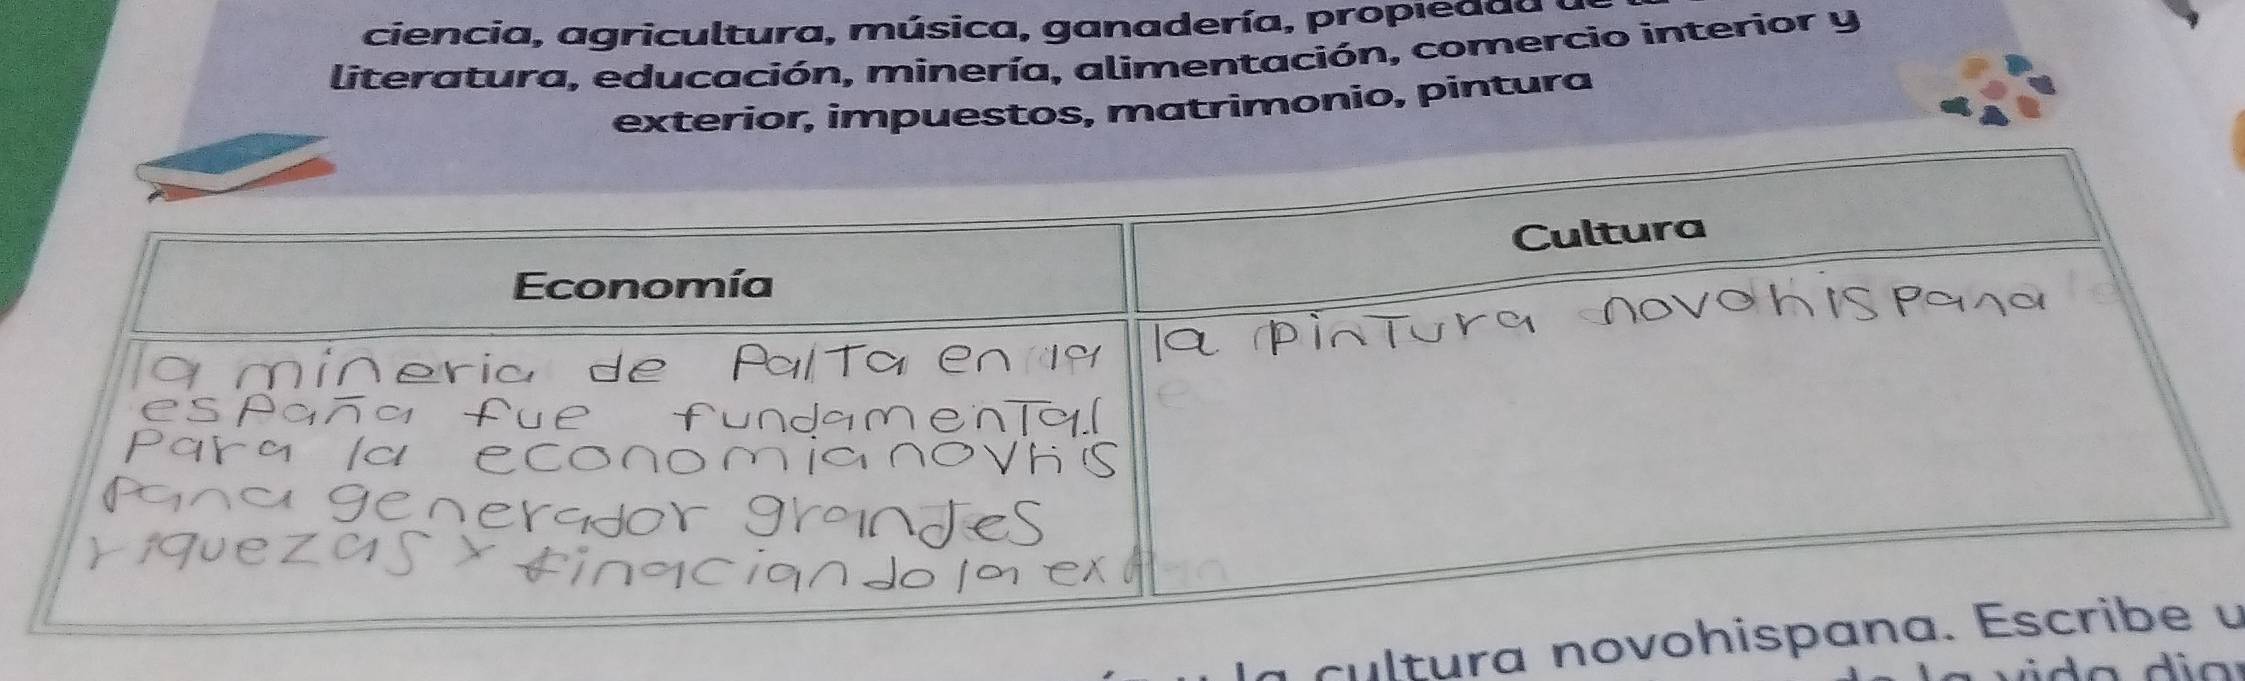 ciencia, agricultura, música, ganadería, propiedad
literatura, educación, minería, alimentación, comercio interior y
exterior, impuestos, matrimonio, pintura
Economía
Cultura
la mineria de Palta en la
españa fue fundamental
Para la economia novhis
pana generador grandes
riquezas y finaciando la ex
la pintura novohispana
la cultura novohispana. Escribe
la vida